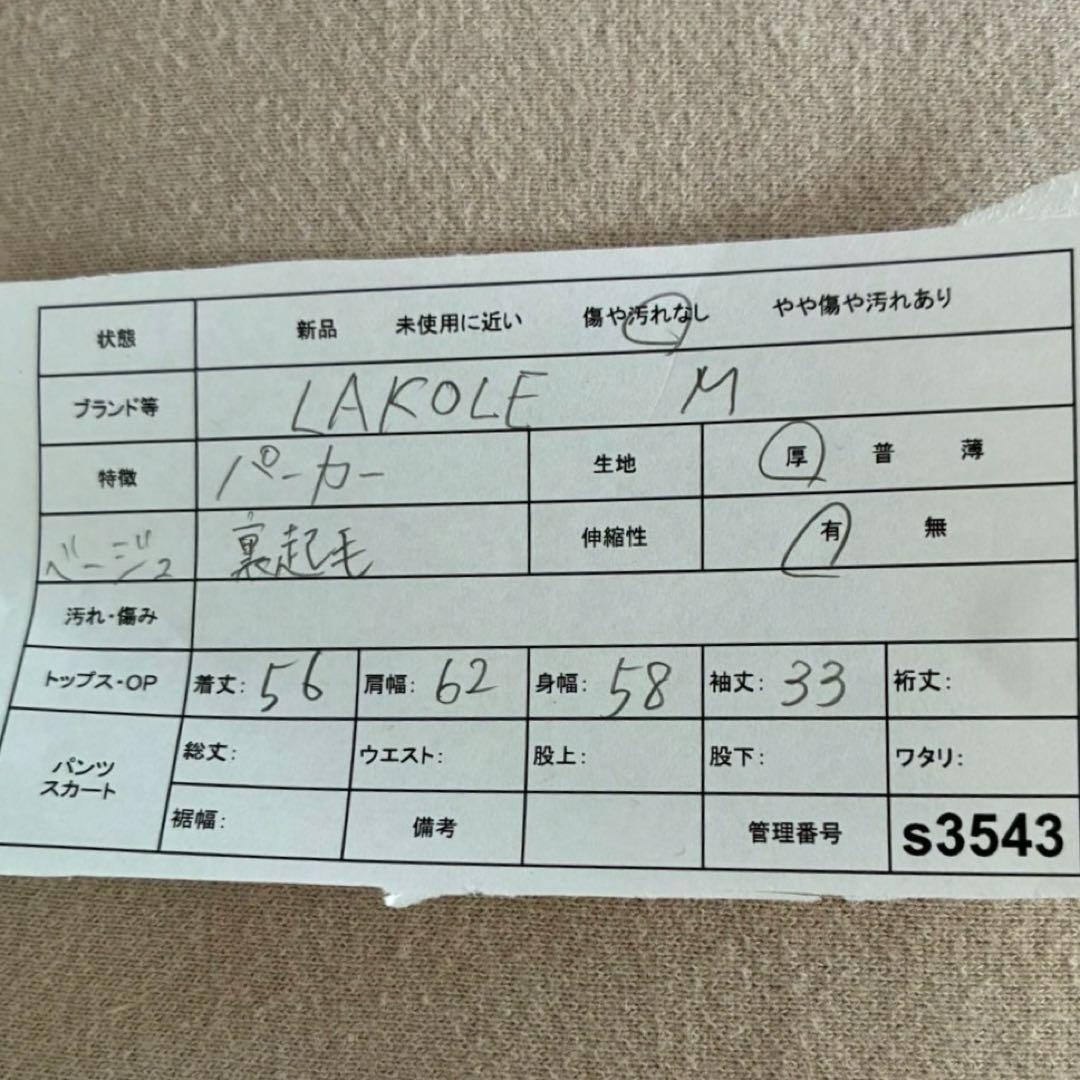 状態 新品 未使用に近い 傷や汚れなし やや傷や汚れあり
ブランド等 LAKOLE M
特徴 パーカー 生地 厚 普 薄
ベージュ 裏起毛 伸縮性 有 無
汚れ・傷み
トップス・OP 着丈: 56 肩幅: 62 身幅: 58 袖丈: 33 裄丈:
パンツ スカート 総丈: ウエスト: 股上: 股下: ワタリ:
裾幅: 備考 管理番号 s3543